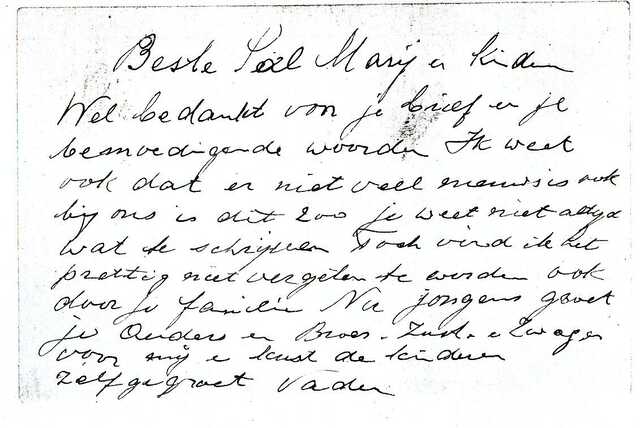 Beste Piel Marij en kinderen
Wel bedankt voor je brief en je
bemoedigende woorden Ik weet
ook dat er niet veel nieuws is ook
bij ons is dit zoo je weet niet altijd
wat te schrijven Toch vind ik het
prettig niet vergeten te worden ook
door je familie Nu jongens groet
je Ouders en Broer. Zust. en Zwager
voor mij en kust de kinderen
zelf gegroet Vader